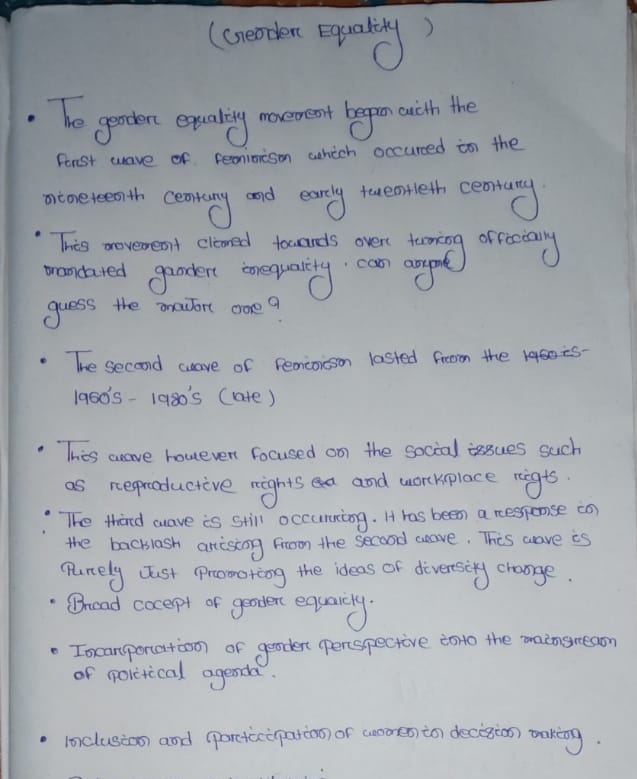 (Gender Equality)
• The gender equality movement began with the
first wave of feminism which occured in the
nineteenth century and early twentieth century.
• This movement climed towards over turning officially
mandated gander inequality. can anyone
guess the major one?
• The second wave of feminism lasted from the 1960 is-
1960's - 1980's (late)
• This wave however focused on the social issues such
as reproductive rights and workplace rigts.
• The third wave is still occurring. It has been a response in
the backlash arising from the second wave. This wave is
Purely Just Promoting the ideas of diversity change.
• Broad cocept of gender equality.
• Incorporation of gender perspective into the mainstream
of political agenda.
• Inclusion and participation of women in decision making.